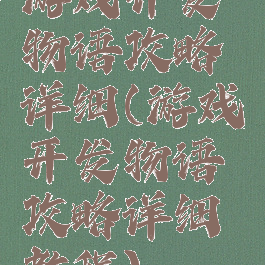 游戏开发
物语攻略
详细(游戏
开发物语
攻略详细